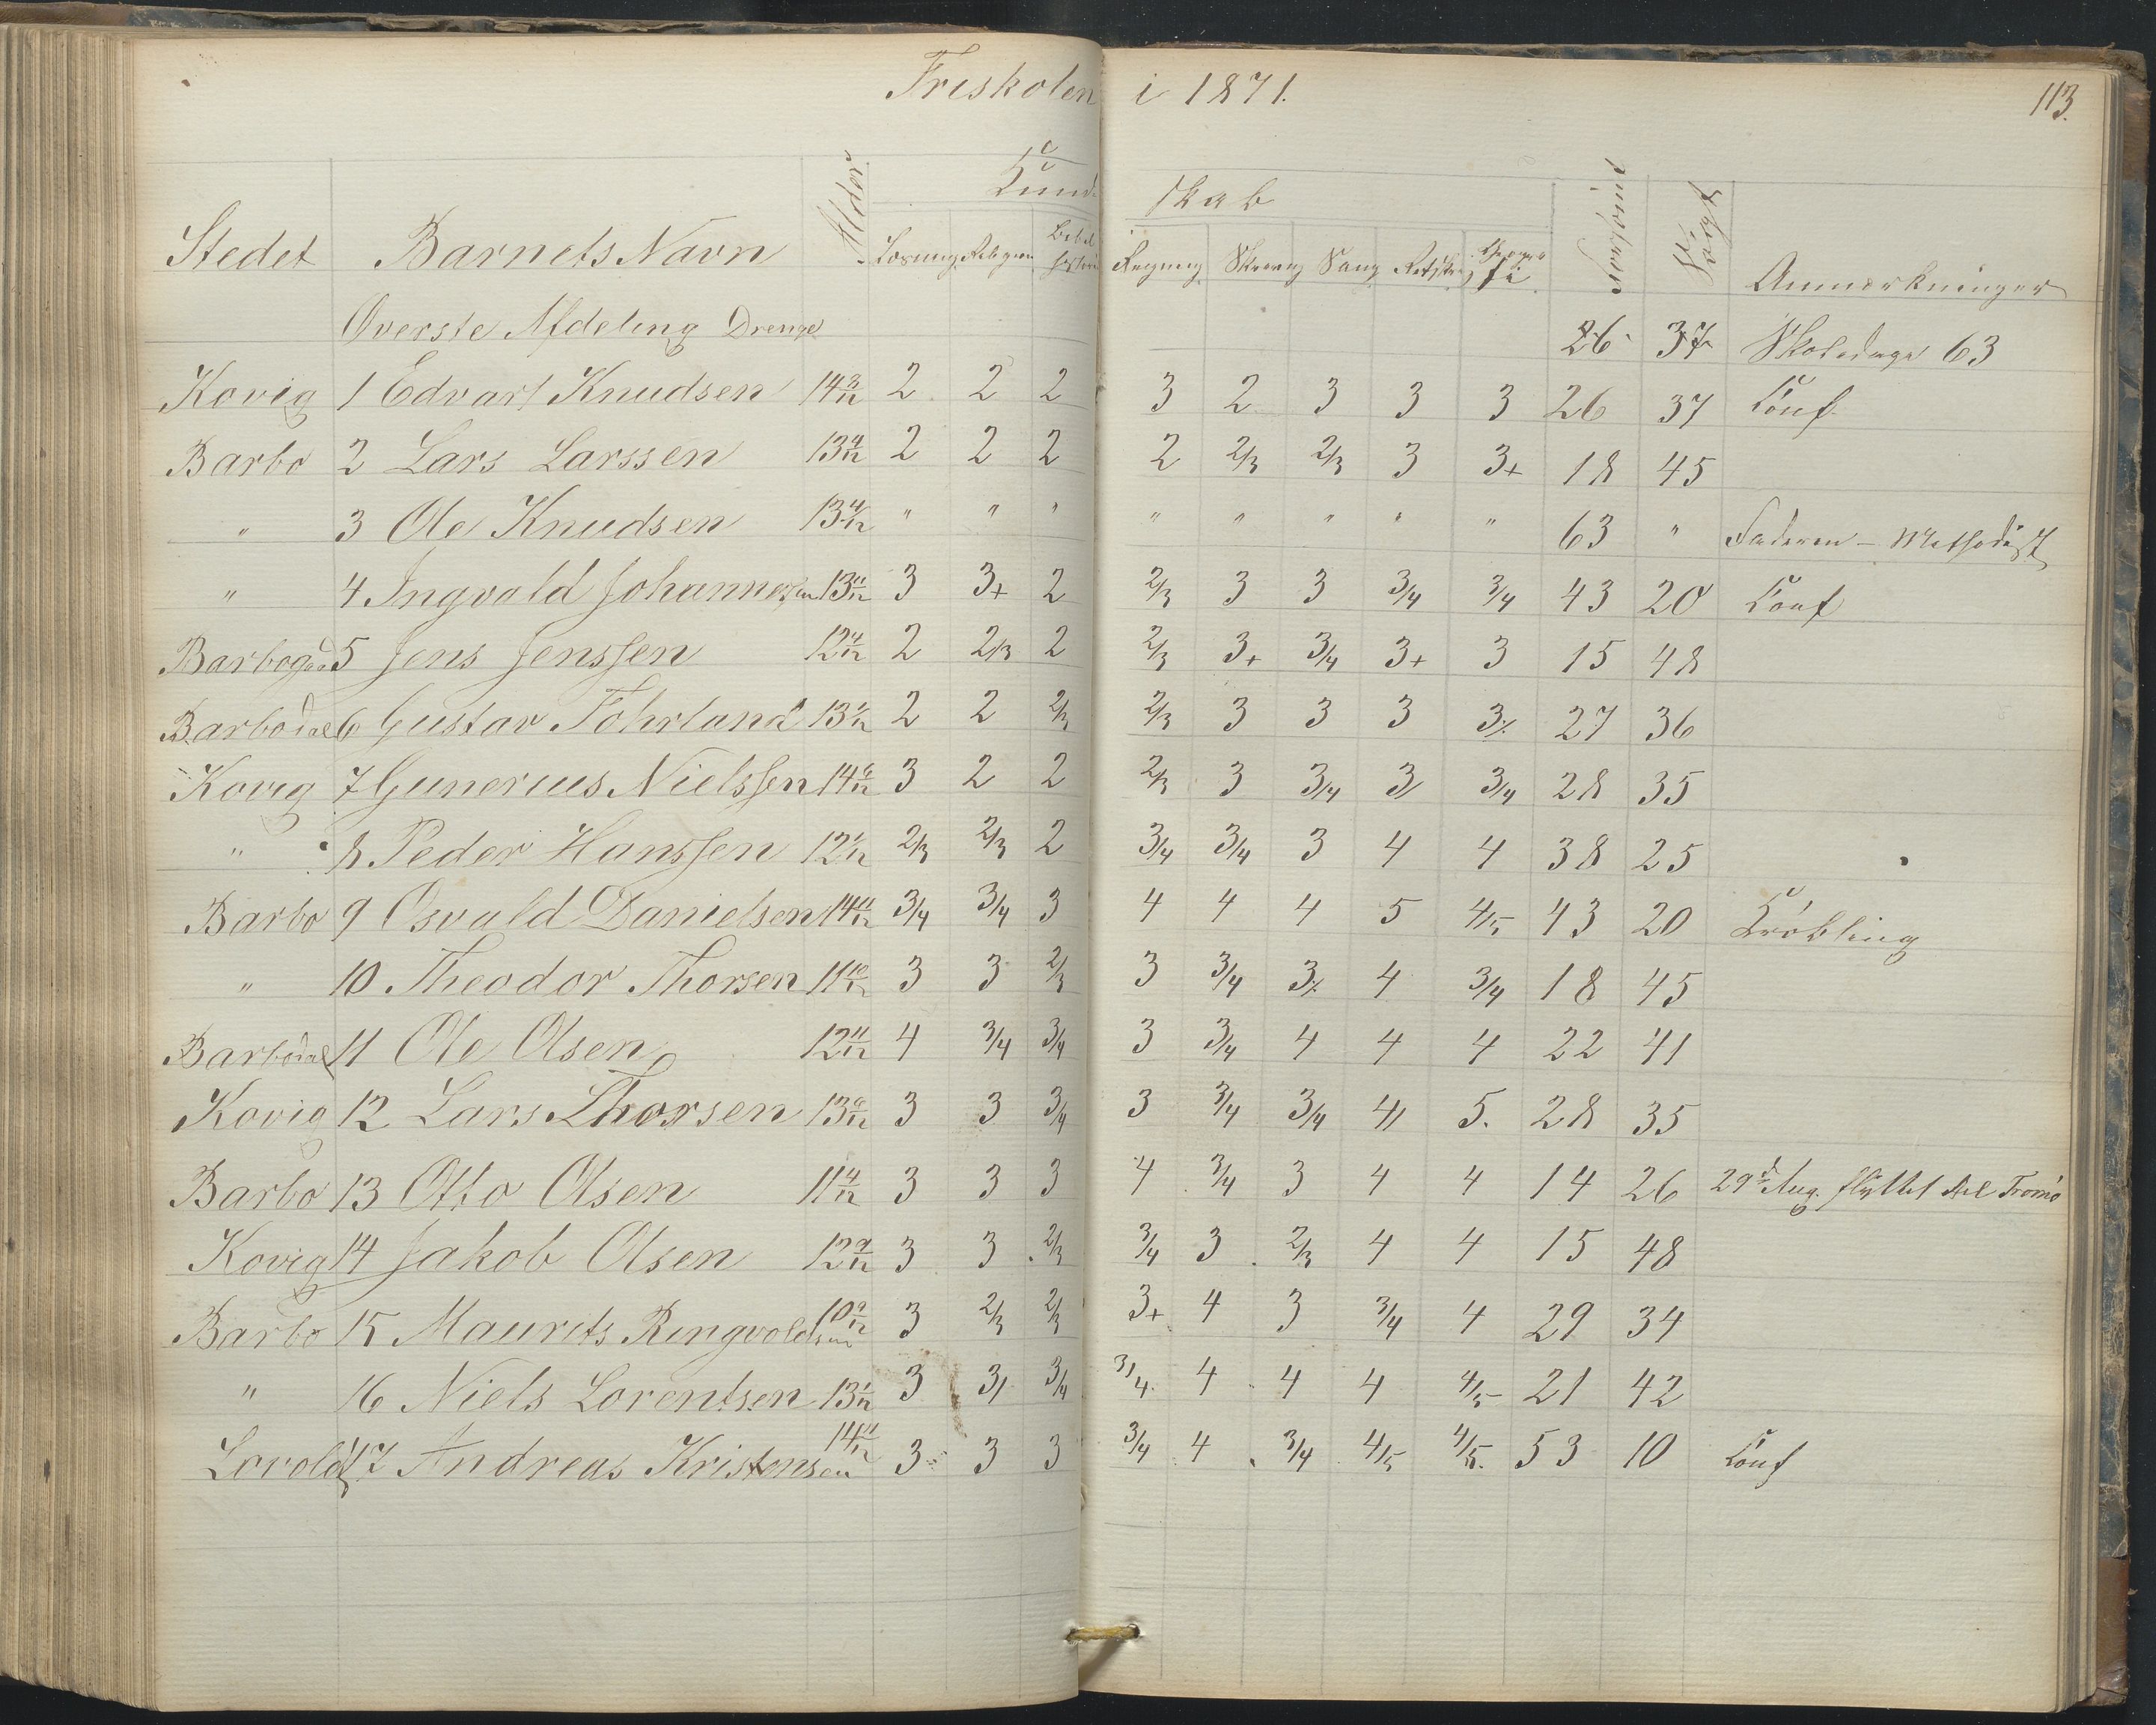 Friskolen i 1871. 113.
Kund- skab
Stedet Barnets Navn Alder Læsning Religion Bibel historie Regning Skrivning Sang Retskr. Geogra fi Forsømt Søgt Anmærkninger
Øverste Afdeling Drenge 26 37 Skoledage 63
Kovig 1 Edvart Knudsen 14 2 2 2 3 2 3 3 3 26 37 Conf.
Barbo 2 Lars Larssen 13 2 2 2 2 2/3 2/3 3 3+ 18 45
" 3 Ole Knudsen 13 4/12 " " " " " " " " 63 " Faderen - Methodist
" 4 Ingvald Johannesen 13 11/12 3 3+ 2 2/3 3 3 3/4 3/4 43 20 Conf
Barbogd 5 Jens Jenssen 12 2 2/3 2 2/3 3+ 3/4 3+ 3 15 48
Barbodal 6 Gustav Fohrland 13 1/12 2 2 2/3 2/3 3 3 3 3 27 36
Kovig 7 Gunerius Nielssen 14 6/12 3 2 2 2/3 3 3/4 3/ 3/4 28 35
" 8 Peder Hanssen 12 1/12 2/3 2/3 2 3/4 3/4 3 4 4 38 25
Barbo 9 Osvald Danielsen 14 11/12 3/4 3/4 3 4 4 4 5 4/5 43 20 Krøbling
" 10 Theodor Thorsen 11 10/12 3 3 2/3 3 3/4 3 4 3/4 18 45
Barbodal 11 Ole Olsen 12 11/12 4 3/4 3/4 3 3/4 4 4 4 22 41
Kovig 12 Lars Thorsen 13 6/12 3 3 3/4 3 3/4 3/4 4/ 5. 28 35
Barbo 13 Otto Olsen 11 4/12 3 3 3 4 3/4 3 4 4 14 26 29d Aug. flyttet til Tromø
Kovig 14 Jakob Olsen 12 9/12 3 3 2/3 3/4 3 2/3 4 4 15 48
Barbo 15 Maurits Ringvoldsen 10 9/12 3 2/3 2/3 3+ 4 3 3/4 4 29 34
" 16 Niels Lorentsen 13 1/12 3 3/ 3/4 3/4 4 4 4 4/5 21 42
Lovold 17 Andreas Kristensen 14 11/12 3 3 3 3/4 4 3/4 4/5 4/5 53 10 Conf